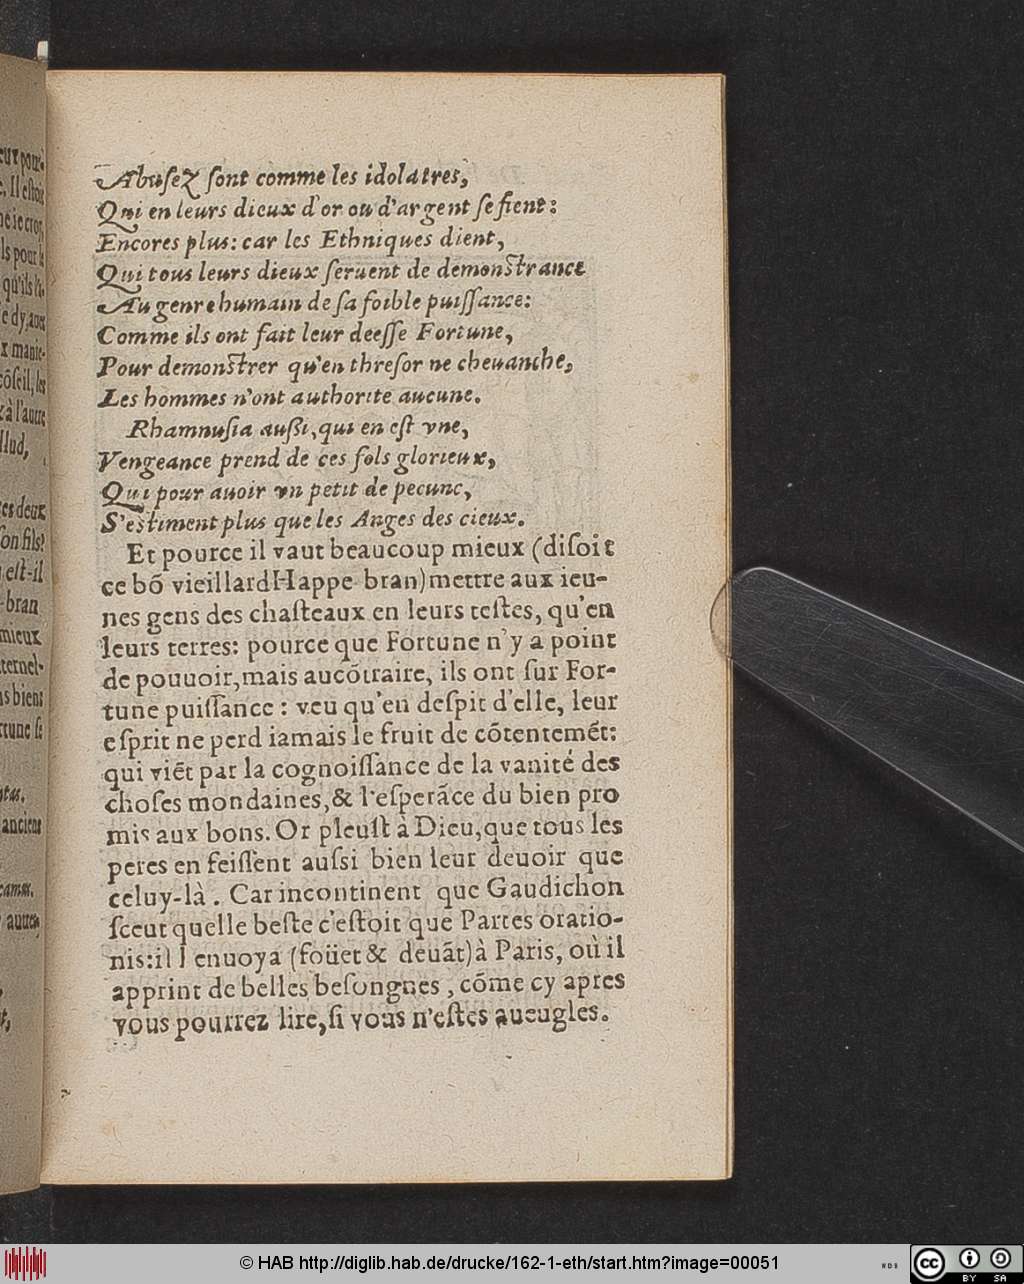 Abuſez ſont comme les idolatres,
Qui en leurs dieux d'or ou d'argent ſe fient:
Encores plus: car les Ethniques dient,
Qui tous leurs dieux ſeruent de demonſtrance
Au genre humain de ſa foible puiſſance:
Comme ils ont fait leur deeſſe Fortune,
Pour demonſtrer qu'en threſor ne cheuanche,
Les hommes n'ont authorite aucune.
Rhamnuſia auſſi, qui en eſt vne,
Vengeance prend de ces fols glorieux,
Qui pour auoir vn petit de pecune,
S'estiment plus que les Anges des cieux.
Et pource il vaut beaucoup mieux (diſoit
ce bõ vieillard Happe-bran) mettre aux ieu-
nes gens des chaſteaux en leurs teſtes, qu'en
leurs terres: pource que Fortune n'y a point
de pouuoir, mais aucõtraire, ils ont ſur For-
tune puiſſance: veu qu'en deſpit d'elle, leur
eſprit ne perd iamais le fruit de cõtentemẽt:
qui viẽt par la cognoiſſance de la vanité des
choſes mondaines, & l'eſperãce du bien pro
mis aux bons. Or pleuſt à Dieu, que tous les
peres en feiſſent auſsi bien leur deuoir que
celuy-là. Car incontinent que Gaudichon
ſceut quelle beſte c'eſtoit que Partes oratio-
nis: il l'enuoya (foüet & deuãt) à Paris, où il
apprint de belles beſongnes, cõme cy apres
vous pourrez lire, ſi vous n'eſtes aueugles.
© HAB http://diglib.hab.de/drucke/162-1-eth/start.htm?image=00051
cc BY SA